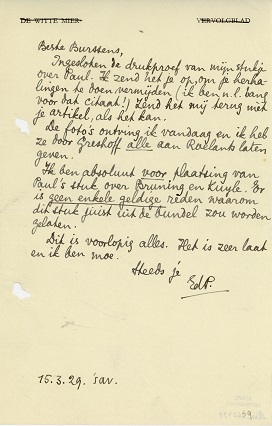 DE WITTE MIER VERVOLGBLAD
Beste Burssens,
Ingesloten de drukproef van mijn stukje
over Paul. Ik zend het je op, om je herha-
lingen te doen vermijden (ik ben n.l. bang
voor dat citaat!) Zend het mij terug met
je artikel, als het kan.
De foto's ontving ik vandaag en ik heb
ze door Greshoff alle aan Roelants laten
geven.
Ik ben absoluut voor plaatsing van
Paul's stuk over Bruning en Kuyle. Er
is geen enkele geldige reden waarom
dit stuk juist uit de bundel zou worden
gelaten.
Dit is voorlopig alles. Het is zeer laat
en ik ben moe.
Steeds je
EdP.
15.3.29. 's av.